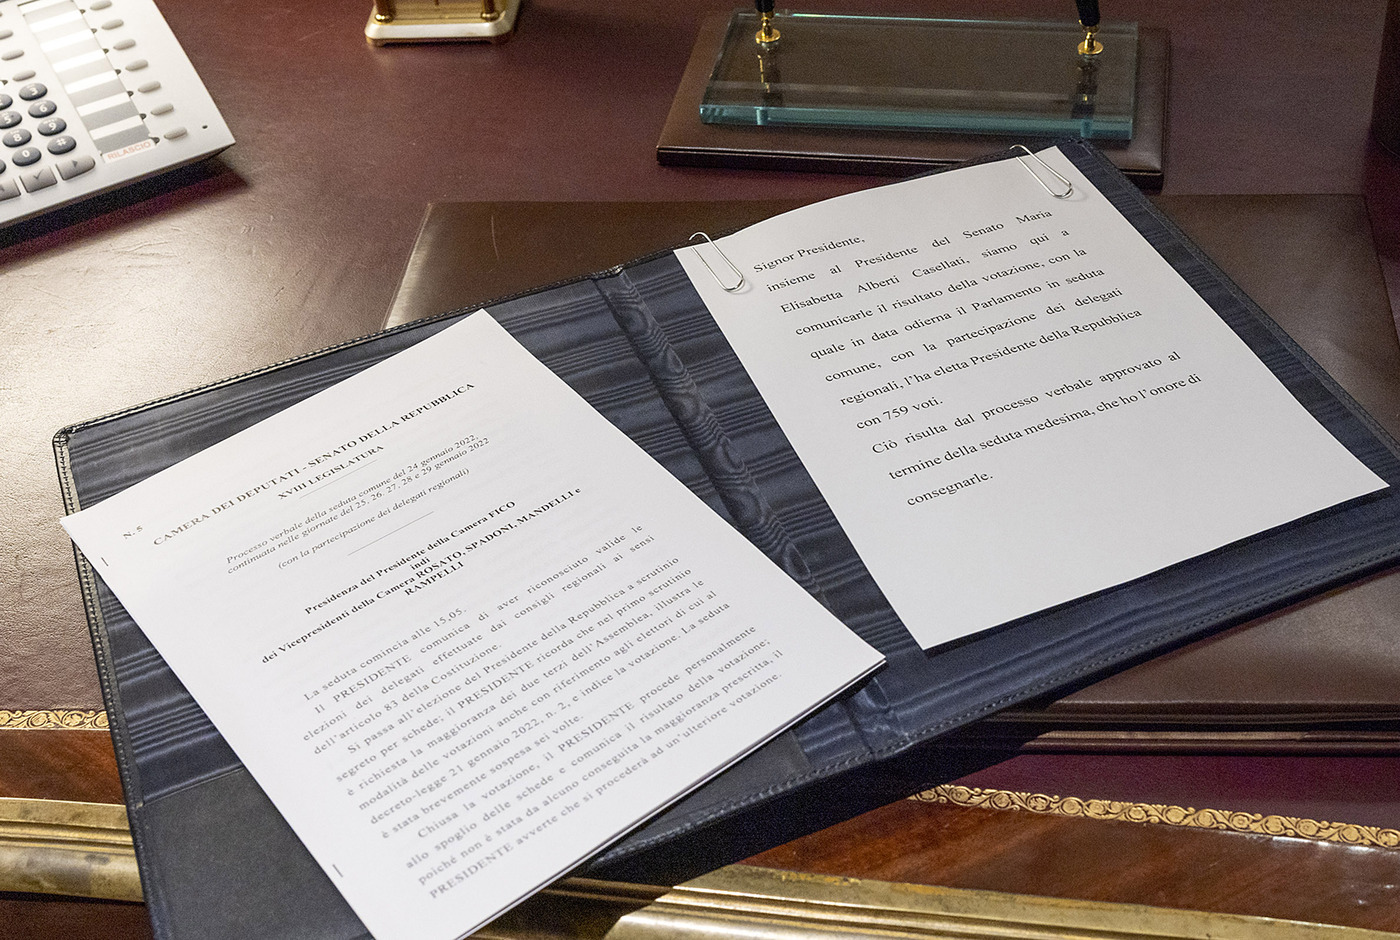 RILASCIO
3
6
9
8
0
#
N. 5
CAMERA DEI DEPUTATI - SENATO DELLA REPUBBLICA
XVIII LEGISLATURA
Processo verbale della seduta comune del 24 gennaio 2022,
continuata nelle giornate del 25, 26, 27, 28 e 29 gennaio 2022
(con la partecipazione dei delegati regionali)
Presidenza del Presidente della Camera FICO
indi
dei Vicepresidenti della Camera ROSATO, SPADONI, MANDELLI e
RAMPELLI
La seduta comincia alle 15.05.
Il PRESIDENTE comunica di aver riconosciuto valide le
elezioni dei delegati effettuate dai consigli regionali ai sensi
dell'articolo 83 della Costituzione.
Si passa all'elezione del Presidente della Repubblica a scrutinio
segreto per schede; il PRESIDENTE ricorda che nel primo scrutinio
è richiesta la maggioranza dei due terzi dell'Assemblea, illustra le
modalità delle votazioni anche con riferimento agli elettori di cui al
decreto-legge 21 gennaio 2022, n. 2, e indice la votazione. La seduta
è stata brevemente sospesa sei volte.
Chiusa la votazione, il PRESIDENTE procede personalmente
allo spoglio delle schede e comunica il risultato della votazione;
poiché non è stata da alcuno conseguita la maggioranza prescritta, il
PRESIDENTE avverte che si procederà ad un'ulteriore votazione.
Signor Presidente,
insieme al Presidente del Senato Maria
Elisabetta Alberti Casellati, siamo qui a
comunicarle il risultato della votazione, con la
quale in data odierna il Parlamento in seduta
comune, con la partecipazione dei delegati
regionali, l'ha eletta Presidente della Repubblica
con 759 voti.
Ciò risulta dal processo verbale approvato al
termine della seduta medesima, che ho l'onore di
consegnarle.